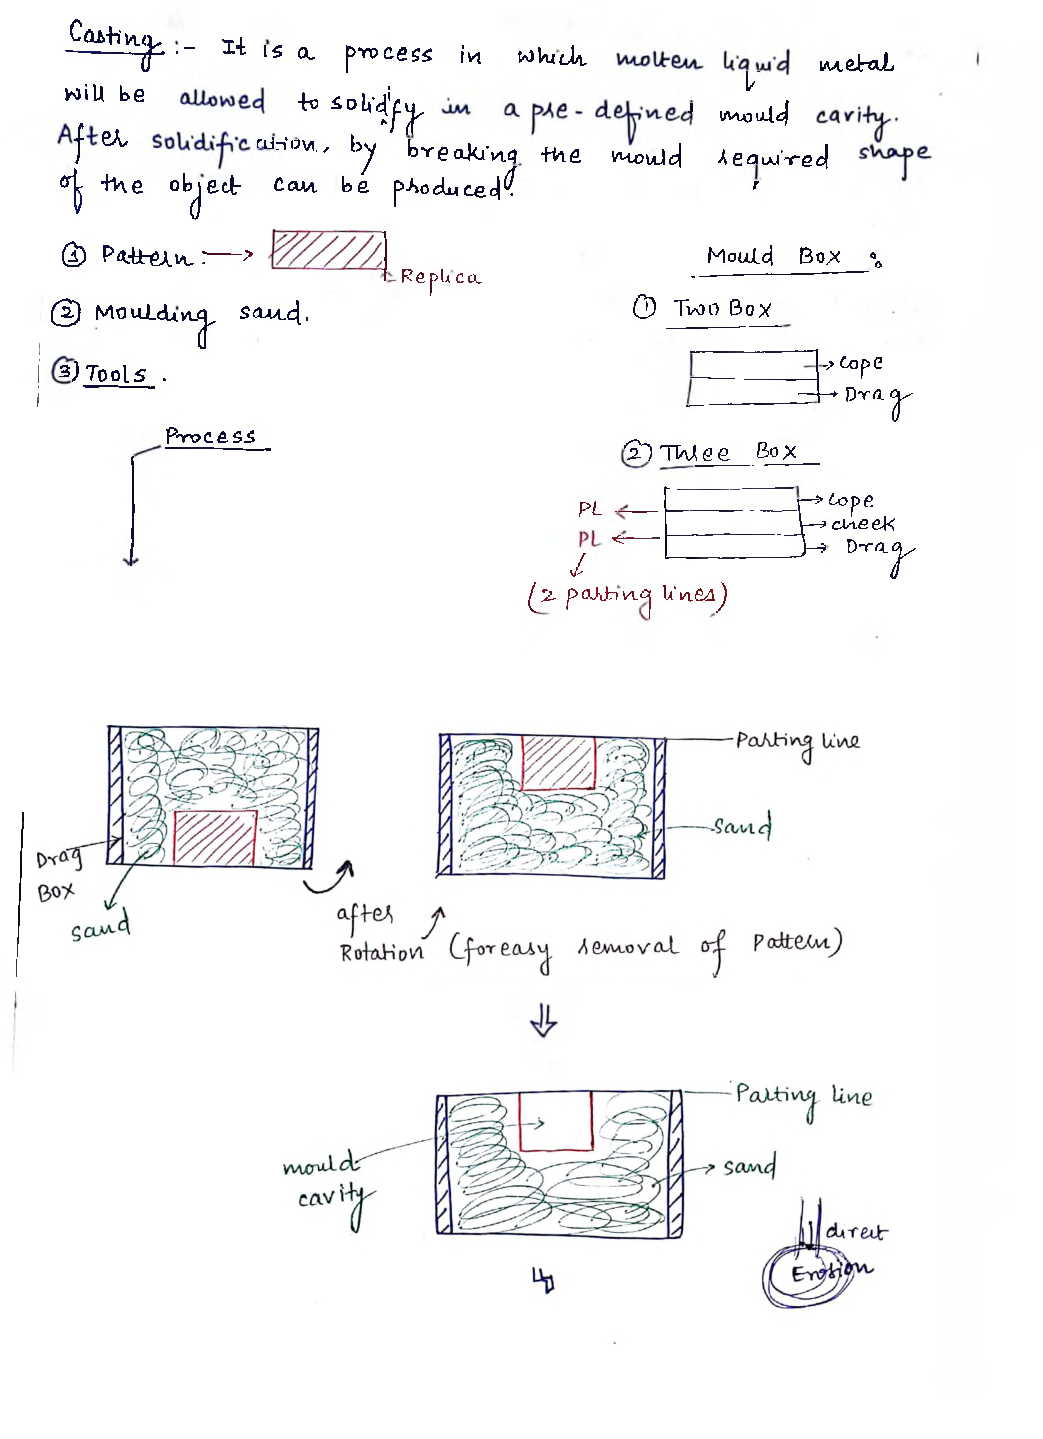 Casting :- It is a process in which molten liquid metal
will be allowed to solidify in a pre-defined mould cavity.
After solidification, by breaking the mould required shape
of the object can be produced.
① Pattern :→
Replica
② Moulding sand.
③ Tools.
Process
Mould Box :
① Two Box
Cope
Drag
② Three Box
PL
PL
Cope
cheek
Drag
(2 parting lines)
Parting line
sand
Drag
Box
sand
after
Rotation (for easy removal of Pattern)
Parting line
mould
cavity
sand
direct
Erosion